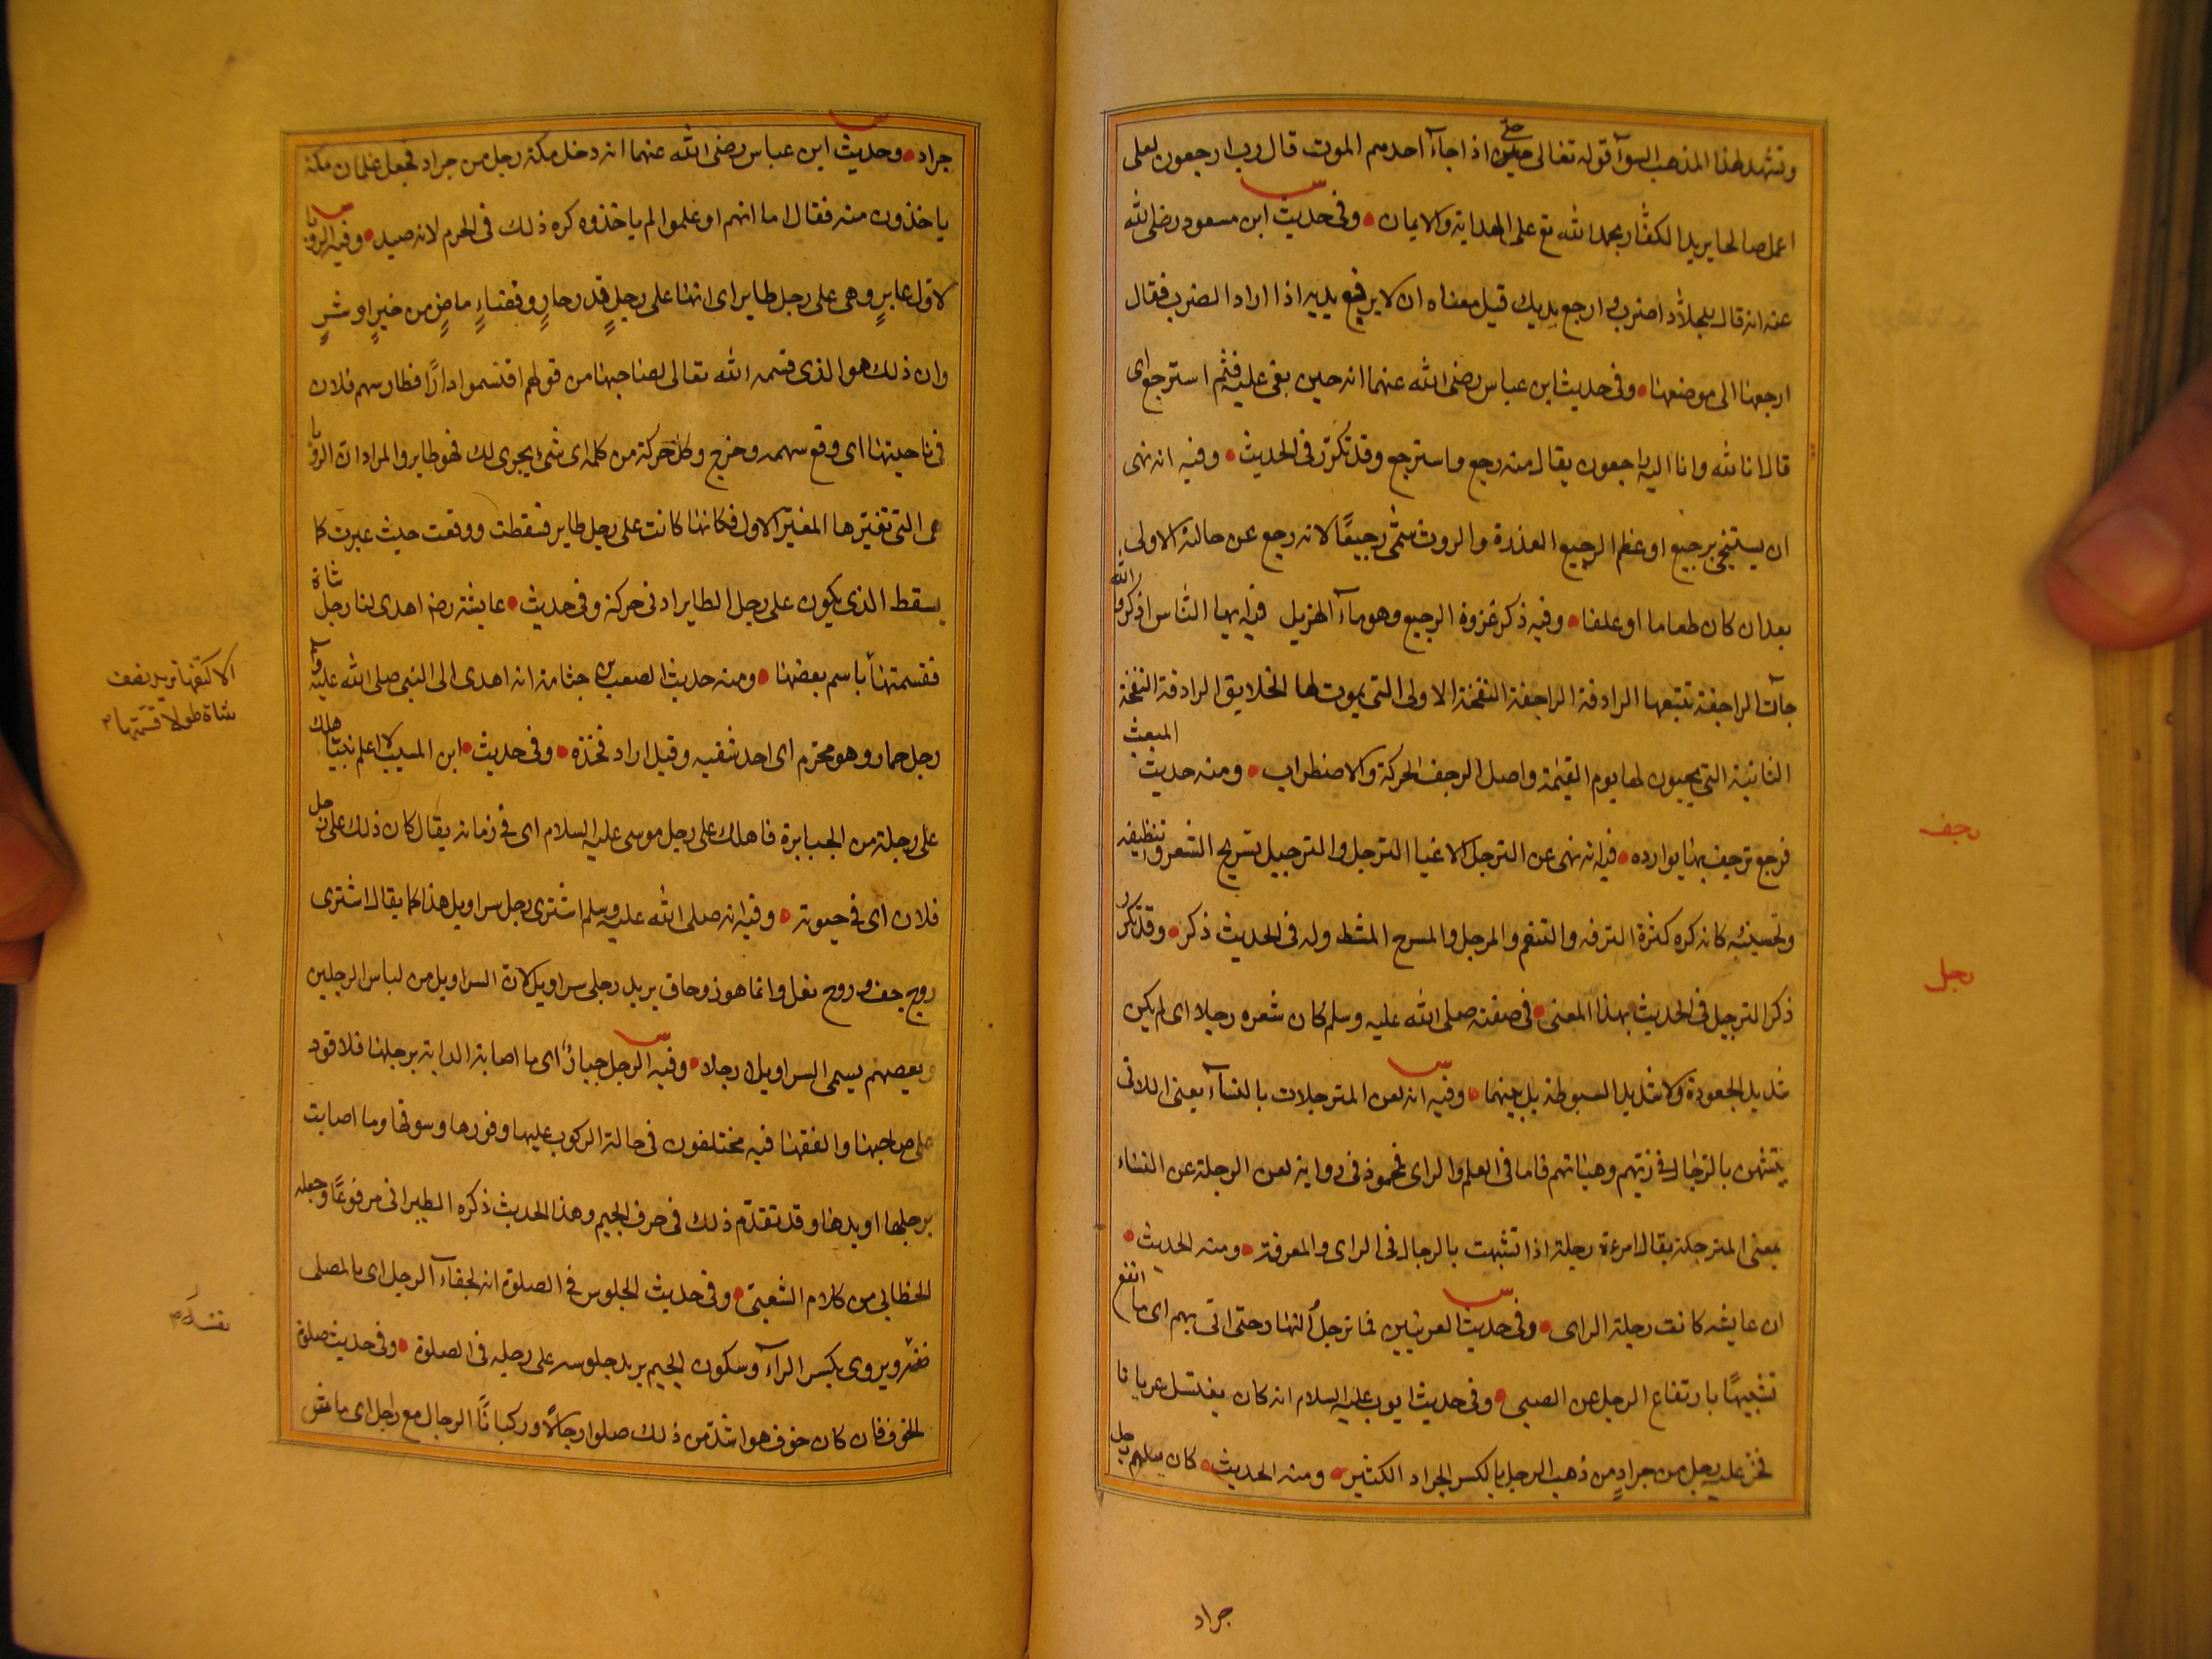 وتشهد لهذا المذهب السوآ قوله تعالى حتى اذا جاآ احدهم الموت قال رب ارجعون لعلى
اعمل صالحا يريد الكفار بحمد الله تع على الهداية والايمان • وفى حديث ابن مسعود رضى الله
عنه انه قال للجلاد اضرب وارجع يديك قيل معناه ان لا يرفع يديه اذا اراد الضرب فقال
ارجعها الى موضعها • وفى حديث ابن عباس رضى الله عنهما انه حين نعى عليه قثم استرجع اى
قال انا لله وانا اليه راجعون يقال منه رجع واسترجع وقد تكرر فى الحديث • وفيه انه نهى
ان يستنجى برجيع او عظم الرجيع العذرة والروث سمى رجيعًا لانه رجع عن حالته الاولى
بعد ان كان طعاما او علفا • وفيه ذكر غزوة الرجيع وهو ماآ لهزيل فيه ايها الناس اذكروا الله
جآت الراجفة تتبعها الرادفة الراجفة النفخة الاولى التى يموت لها الخلايق الرادفة النفخة
الثانية التى يحيون لها يوم القيمة واصل الرجف الحركة والاضطراب • ومنه حديث المبعث
رجف
فرجع ترجف بها بوادره • فيه انه نهى عن الترجل الا غبا الترجل والترجيل تسريح الشعر وتنظيفه
وتحسينه كانه كره كثرة الترفه والتنعم والمرجل والمسرح المشط وله فى الحديث ذكر • وقد تكرر
رجل
ذكر الترجيل فى الحديث بهذا المعنى • فى صفته صلى الله عليه وسلم كان شعره رجلا اى لم يكن
شديد الجعودة ولا شديد السبوطة بل بينهما • وفيه انه لعن المترجلات بالنسآ يعنى اللاتى
يتشبهن بالرجال فى زيهم وهيئاتهم فاما فى العلم والراى فمحمود فى رواية لعن الرجلة عن النساء
بمعنى المترجلة يقال امرءة رجلة اذا تشبهت بالرجال فى الراى والمعرفة • ومنه الحديث •
ان عايشه كانت رجلة الراى • وفى حديث العرنيين فما ترجل النهار حتى اتى بهم اى ما ارتفع
تشبيهًا بارتفاع الرجل عن الصبى • وفى حديث ايوب عليه السلام انه كان يغتسل عريانا
فخر عليه رجل من جراد من ذهب الرجل بالكسر الجراد الكثير • ومنه الحديث • كان نبلهم رجل
جراد
جراد • وحديث ابن عباس رضى الله عنهما انه دخل مكة رجل من جراد فجعل غلمان مكة
ياخذون منه فقال اما انهم لو علموا لم ياخذوه كره ذلك فى الحرم لانه صيد • وفيه الرويا
لاول عابرٍ وهى على رجل طاير اى انها على رجلِ قدرٍ جارٍ وقضاءٍ ماضٍ من خيرٍ او شرٍ
وان ذلك هو الذى قسمه الله تعالى لصاحبها من قولهم اقتسموا دارًا فطار سهم فلان
فى ناحيتها اى وقع سهمه وخرج وكل حركة من كلمة اى شئ يجرى لك فهو طاير والمراد ان الرويا
هى التى تغيرها المعبر الاول فكانها كانت على رجل طاير فسقطت ووقعت حيث عبرت كما
يسقط الذى يكون على رجل الطاير ادنى حركة وفى حديث • عايشة رضه اهدى لنا رجل شاة
فقسمتها باسم بعضها • ومنه حديث الصعب بن جثامة انه اهدى الى النبى صلى الله عليه وسلم
الا كتفها تريد نصف
شاة طولا قسمتها
رجل حمار وهو محرم اى احد شقيه وقيل اراد فخذه • وفى حديث • ابن المسيب لا اعلم نبيًا هلك
على رجله من الجبابرة ما هلك على رجل موسى عليه السلام اى فى زمانه يقال كان ذلك على رجل
فلان اى فى حيوته • وفيه انه صلى الله عليه وسلم اشترى رجل سراويل هذا كما يقال اشترى
زوج خف وزوج نعل وانما هو زوجان يريد رجلى سراويل لان السراويل من لباس الرجلين
وبعضهم يسمى السراويل رجلا • وفيه الرجل جبار اى ما اصابة الدابة برجلها فلا قود
على صاحبها والفقها فيه مختلفون فى حالة الركوب عليها وقودها وسوقها وما اصابت
برجلها او يدها وقد تقدم ذلك فى حرف الجيم وهذا الحديث ذكره الطبرانى مرفوعًا وجعله
الخطابى من كلام الشعبى • وفى حديث الجلوس فى الصلوة انه لجفاآ الرجل اى بالمصلى
نفسه ويروى بكسر الرآ وسكون الجيم يريد جلوسه على رجله فى الصلوة • وفى حديث صلوة
بنفسه
الخوف فان كان خوف هو اشد من ذلك صلوا رجالًا وركبانًا الرجال جمع راجل اى ماش